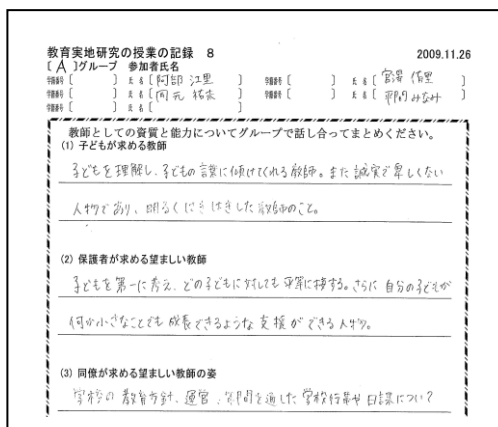 教育実地研究の授業の記録 8
2009.11.26
[ A ]グループ 参加者氏名
学籍番号 [ ] 氏名 [ 阿部 江里 ] 学籍番号 [ ] 氏名 [ 宮澤 侑里 ]
学籍番号 [ ] 氏名 [ 岡元 祐衣 ] 学籍番号 [ ] 氏名 [ 平間 みなみ ]
学籍番号 [ ] 氏名 [ ]
教師としての資質と能力についてグループで話し合ってまとめください。
(1) 子どもが求める教師
子どもを理解し、子どもの言葉に傾けてくれる教師。また誠実で卑しくない
人物であり、明るくはきはきした教師のこと。
(2) 保護者が求める望ましい教師
子どもを第一に考え、どの子どもに対しても平等に接する。さらに自分の子どもが
何か小さなことでも成長できるような支援ができる人物。
(3) 同僚が求める望ましい教師の姿
学校の教育方針、運営、年間を通した学校行事や日課につい?